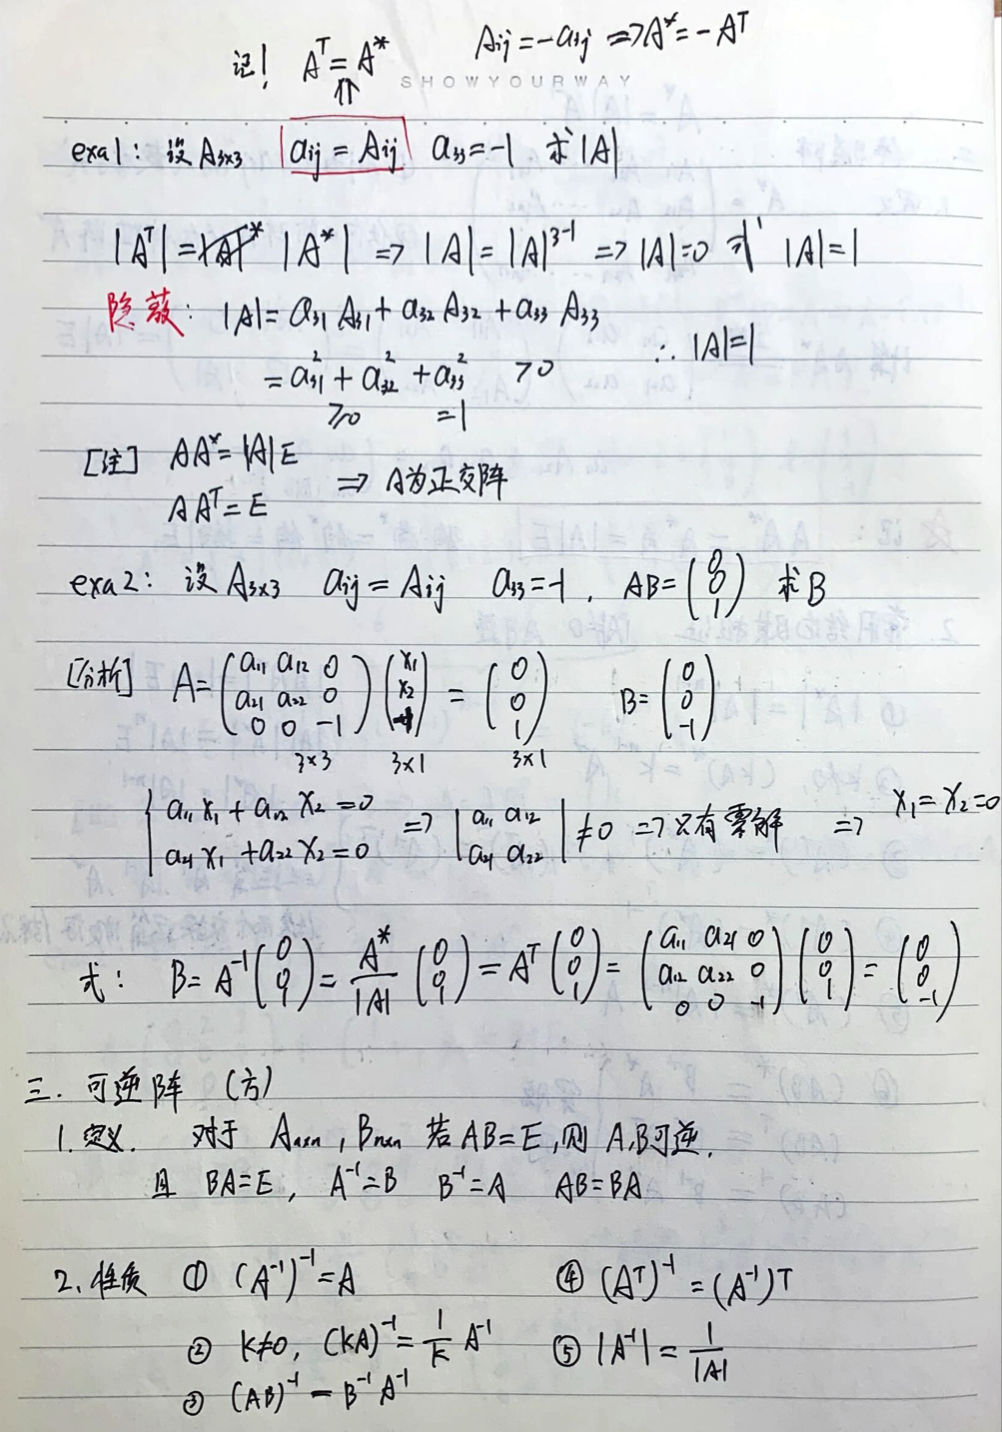 记! Aᵀ = A* Aij = -aij ⇒ A* = -Aᵀ
⇑ SHOWYOURWAY
exa1: 设 A₃ₓ₃ aij = Aij a₃₃ = -1 求 |A|
|Aᵀ| = |A*| ⇒ |A| = |A|³⁻¹ ⇒ |A| = 0 或 |A| = 1
隐蔽: |A| = a₃₁A₃₁ + a₃₂A₃₂ + a₃₃A₃₃
= a₃₁² + a₃₂² + a₃₃² > 0 ∴ |A| = 1
≥0 = 1
[注] AA* = |A|E
AAᵀ = E ⇒ A为正交阵
exa2: 设 A₃ₓ₃ aij = Aij a₃₃ = -1, AB = (0 0 1) 求 B
[分析] A = (a₁₁ a₁₂ 0; a₂₁ a₂₂ 0; 0 0 -1) (x₁; x₂; -1) = (0; 0; 1) B = (0; 0; -1)
3×3 3×1 3×1
{ a₁₁x₁ + a₁₂x₂ = 0
a₂₁x₁ + a₂₂x₂ = 0 ⇒ |a₁₁ a₁₂; a₂₁ a₂₂| ≠ 0 ⇒ 只有零解 ⇒ x₁ = x₂ = 0
式: B = A⁻¹(0; 0; 1) = A*/|A| (0; 0; 1) = Aᵀ(0; 0; 1) = (a₁₁ a₂₁ 0; a₁₂ a₂₂ 0; 0 0 -1)(0; 0; 1) = (0; 0; -1)
三. 可逆阵 (方)
1. 定义. 对于 Aₙₓₙ, Bₙₓₙ 若 AB = E, 则 A,B可逆.
且 BA = E, A⁻¹ = B B⁻¹ = A AB = BA
2. 性质 ① (A⁻¹)⁻¹ = A ④ (Aᵀ)⁻¹ = (A⁻¹)ᵀ
② K≠0, (KA)⁻¹ = 1/K A⁻¹ ⑤ |A⁻¹| = 1/|A|
③ (AB)⁻¹ = B⁻¹A⁻¹